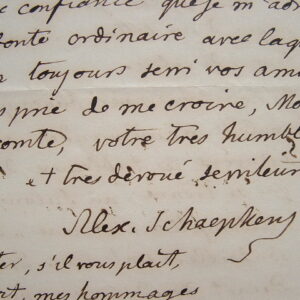 confiance que je m'ad
bonté ordinaire avec laq
toujours servi vos am
prie de me croire, Mo
comte, votre très humb
et très dévoué serviteur
Alex. Schaepkens
s'il vous plait,
mes hommages